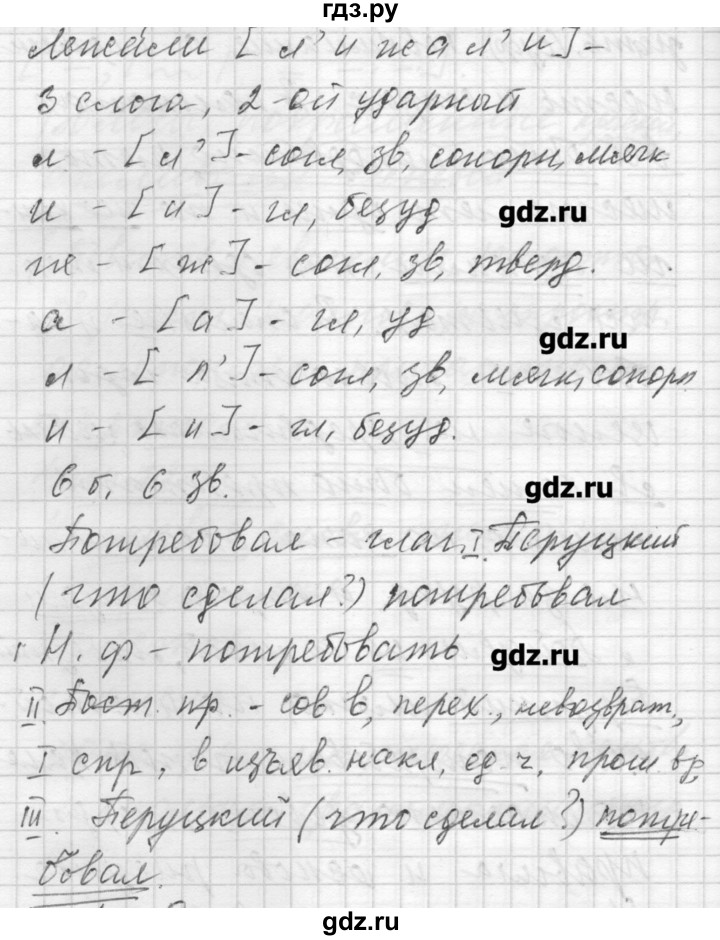 гдз.ру
Лежали [л' и ж а л' и] -
3 слога, 2-ой ударный
л - [л'] - согл, зв, сонорн, мягк
и - [и] - гл, безуд
gdz.ru
ж - [ж] - согл, зв, тверд.
а - [а] - гл, уд
gdz.ru
л - [л'] - согл, зв, мягк, сонорн
и - [и] - гл, безуд.
6 б, 6 зв.
gdz.ru
Потребовал - глаг, I. Перуцкий
(что сделал?) потребовал
Н. ф - потребовать
gdz.ru
II Пост. пр. - сов в, перех., невозврат.,
I спр, в изъяв. накл, ед. ч, прош. вр,
III. Перуцкий (что сделал?) потре-
бовал.
gdz.ru